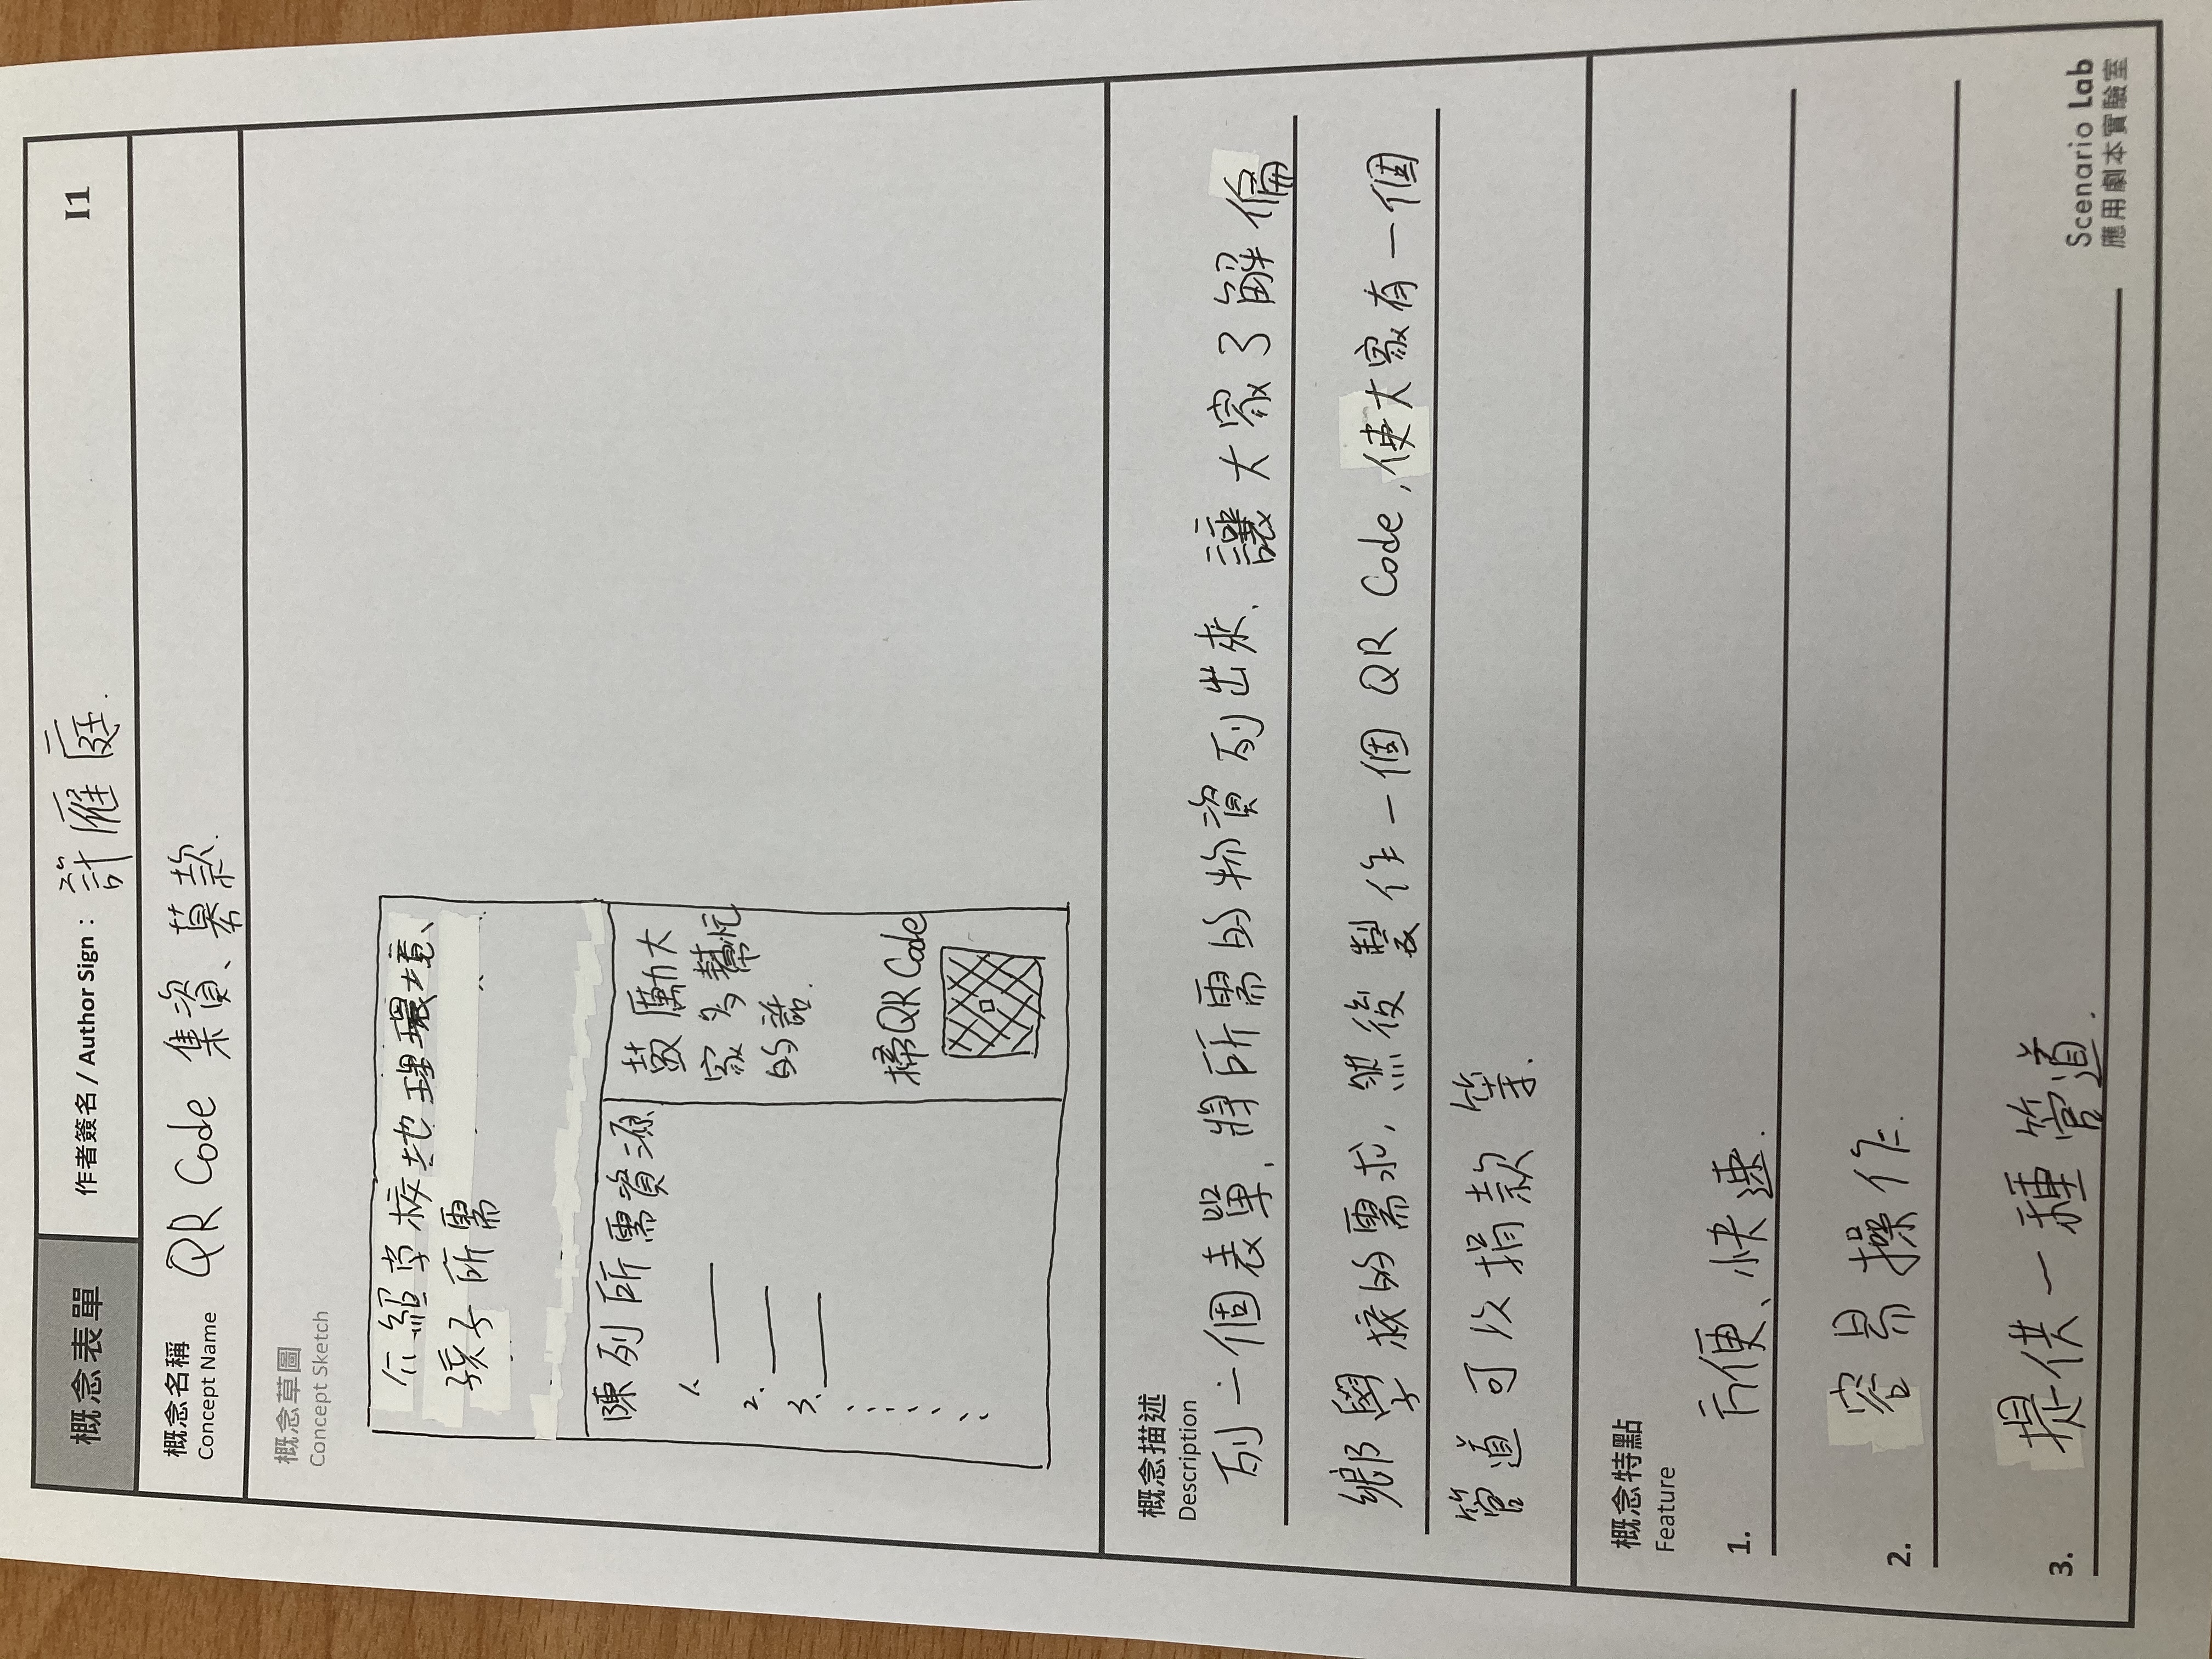 概念表單
作者簽名 / Author Sign： 計雁庭.
I1
概念名稱
Concept Name
QR Code 集資、募款.
概念草圖
Concept Sketch
介紹学校地理環境、
孩子所需
陳列所需資源
1.
2.
3.
鼓勵大
家多幫忙
的話.
掃QR Code
概念描述
Description
列一個表單,將所需的物資列出來.讓大家了解偏
鄉學校的需求,然後製作一個 QR Code,使大家有一個
管道可以捐款等.
概念特點
Feature
1. 方便、快速.
2. 容易操作.
3. 提供一種管道.
Scenario Lab
應用劇本實驗室